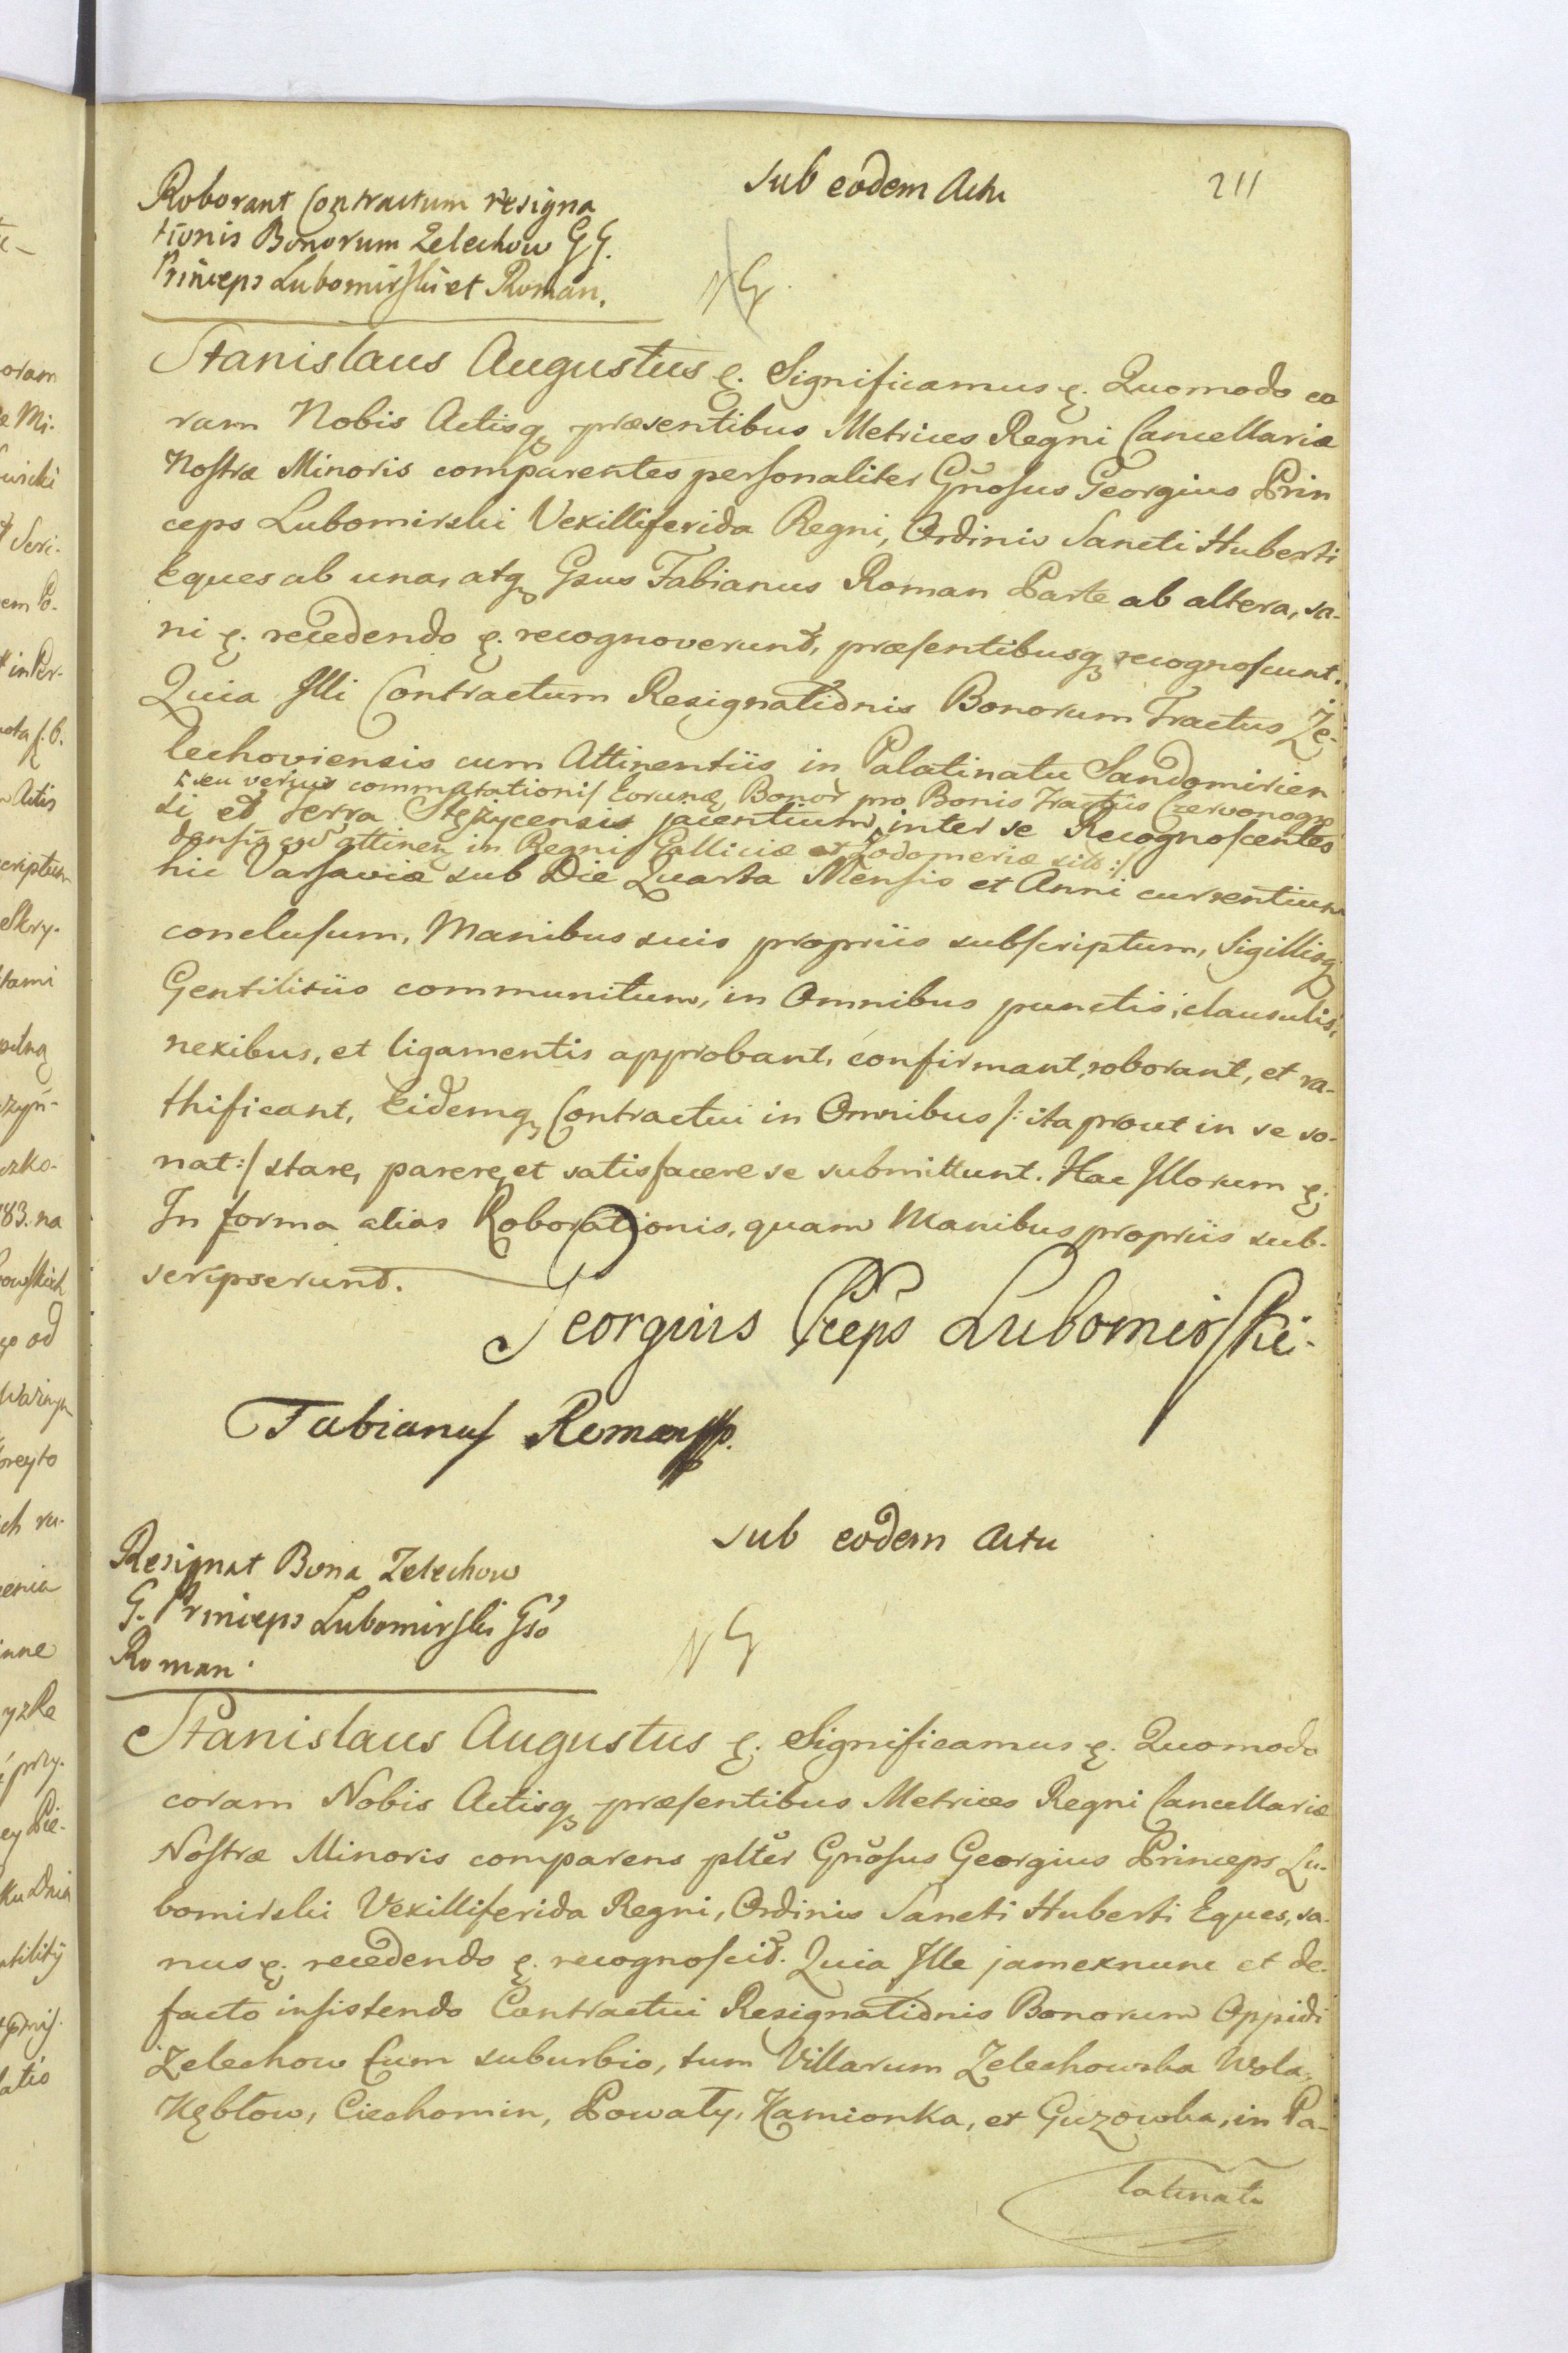 211
sub eodem Actu
Roborant Contractum resigna
tionis Bonorum Zelechow GG.
Princeps Lubomirski et Roman.
NG.
Stanislaus Augustus &. Significamus &. Quomodo co
ram Nobis Actisq₃ præsentibus Metrices Regni Cancellariæ
Nostræ Minoris comparentes personaliter Gñosus Georgius Prin
ceps Lubomirski Vexilliferida Regni, Ordinis Sancti Huberti
Eques ab una, atq₃ Gsus Fabianus Roman Parte ab altera, sa-
ni &. recedendo &. recognoverunt, præsentibusq₃ recognoscunt.
Quia Illi Contractum Resignationis Bonorum Tractus Że-
lechoviensis cum Attinentiis in Palatinatu Sandomirien
seu verius commutationis Eorunq₃ Bonor pro Bonis Tractus Czervonogro
si et Terra Stężycensis jacentium, inter se Recognoscentes
densis cum attinen in Regnis Galliciæ et Lodomeriæ sitis :/
hic Varsaviæ sub Die Quarta Mensis et Anni currentium
conclusum, Manibus suis propriis subscriptum, Sigillisq₃
Gentilitiis communitum, in Omnibus punctis, clausulis,
nexibus, et ligamentis approbant, confirmant, roborant, et ra-
thificant, Eidemq₃ Contractui in Omnibus /: ita prout in se so-
nat :/ stare, parere, et satisfacere se submittunt. Hac Illorum &.
In forma alias Roborationis, quam Manibus propriis sub-
scripserunt.
Georgius Pceps Lubomirski.
Fabianus Roman mpp.
sub eodem Actu
Resignat Bona Zelechow
G. Princeps Lubomirski Gso
Roman.
NG
Stanislaus Augustus &. Significamus &. Quomodo
coram Nobis Actisq₃ præsentibus Metrices Regni Cancellariæ
Nostræ Minoris comparens plter Gñosus Georgius Princeps Lu-
bomirski Vexilliferida Regni, Ordinis Sancti Huberti Eques, sa-
nus &. recedendo &. recognoscit. Quia Ille jamexnunc et de-
facto insistendo Contractui Resignationis Bonorum Oppidi
Zelechow Cum suburbio, tum Villarum Zelechowska Wola,
Kębłow, Ciechomin, Powały, Kamionka, et Guzowka, in Pa-
latinatu